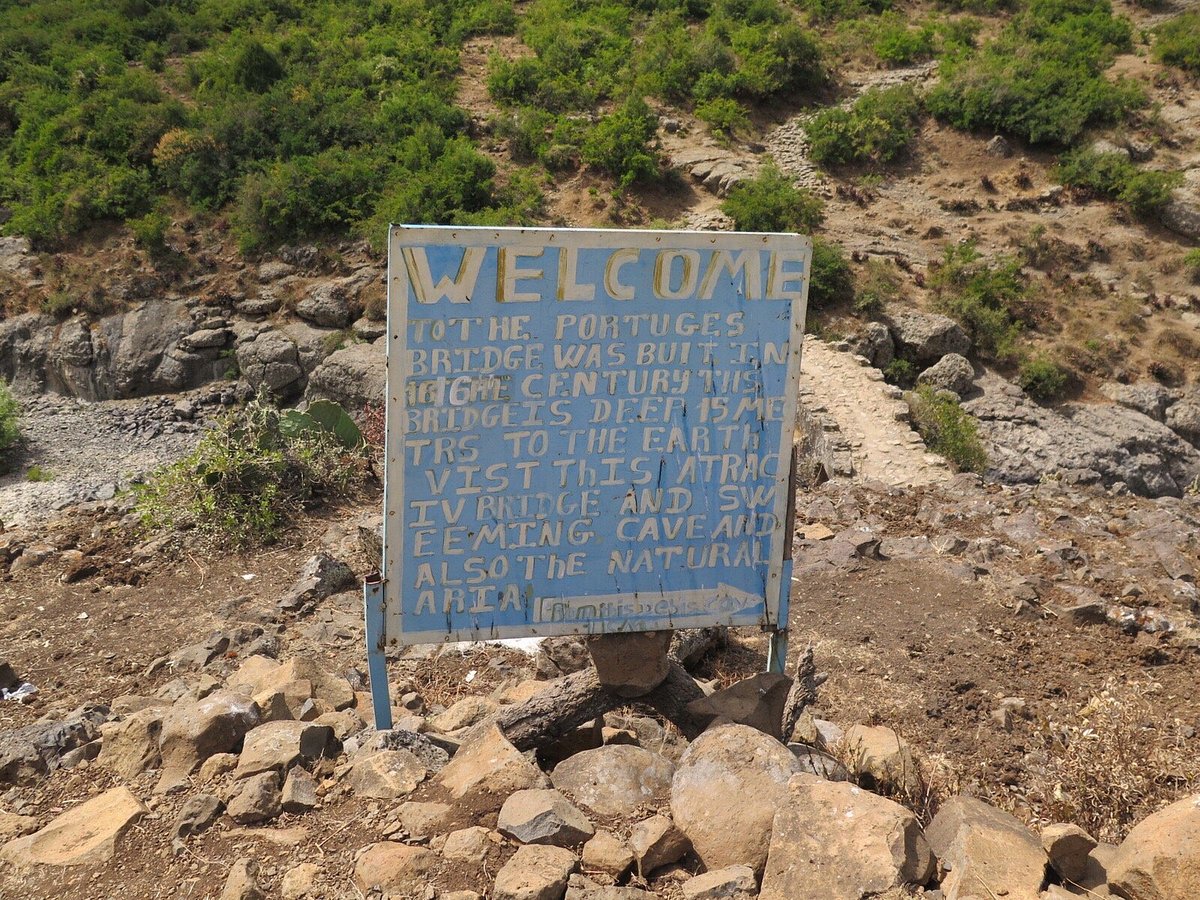 WELCOME
TO THE PORTUGES
BRIDGE WAS BUIT IN
16 THE CENTURY THIS
BRIDGE IS DEEP 15 ME
TRS TO THE EARTH
VIST THIS ATRAC
IV BRIDGE AND SW
EEMING CAVE AND
ALSO THE NATURAL
ARIA